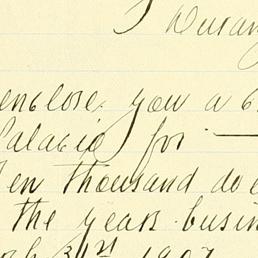 Duran
enclose you a
Palacio for
Ten thousand do
the years busin
31st 1907